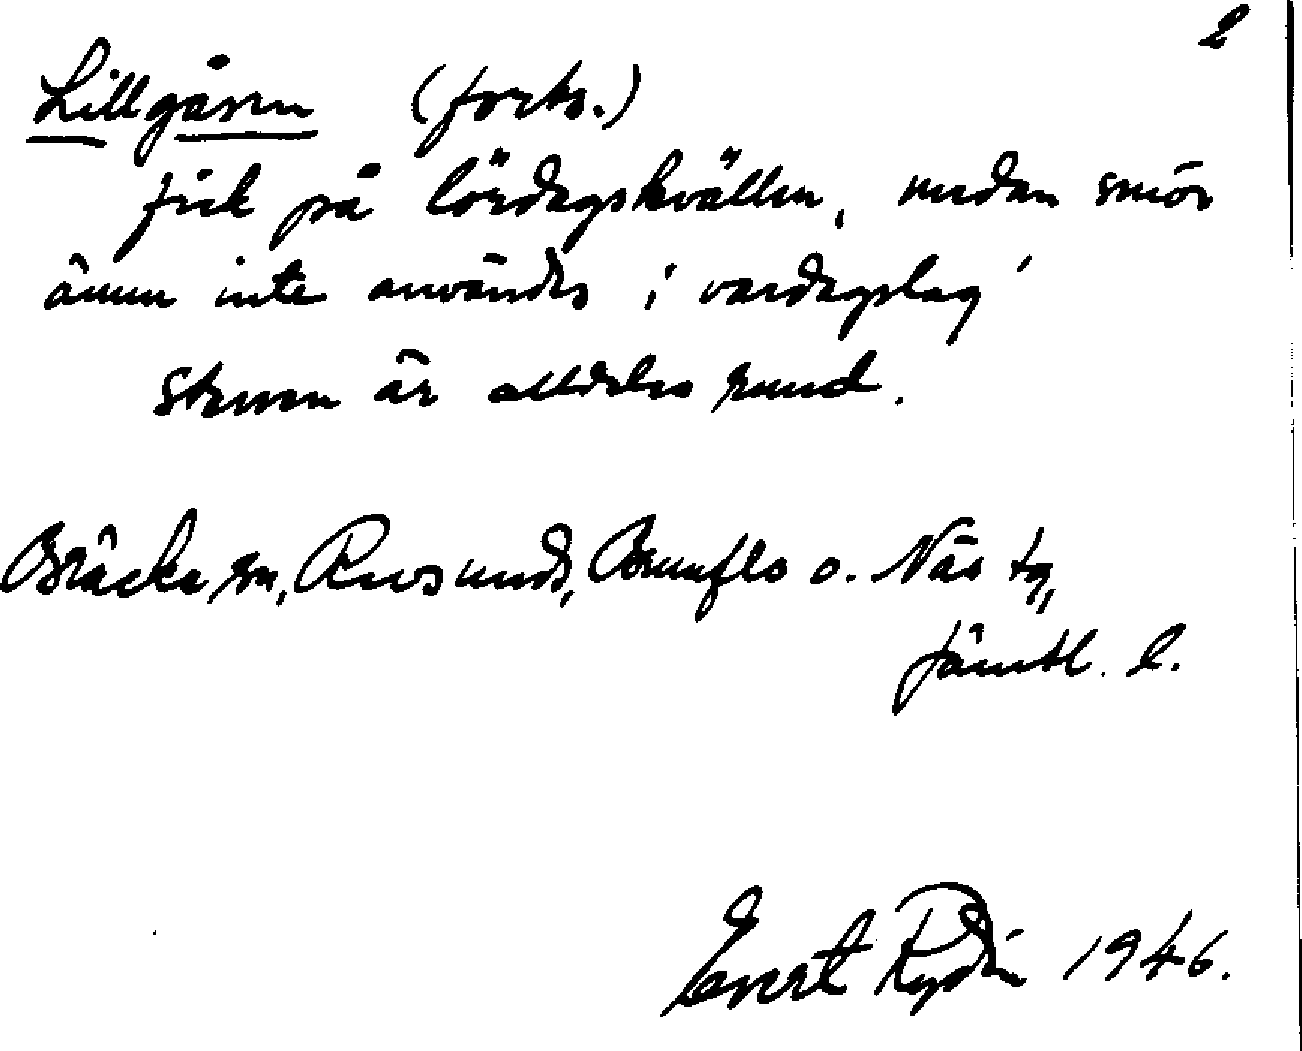 2
Lillgåsen (forts.)
fick på lördagskvällen, medan smör
ännu inte användes i vardagslag'
Stenen är alldeles rund.
Bräcke sn, Revsunds, Brunflo o. Näs tg,
Jämtl. l.
Evert Rydin 1946.